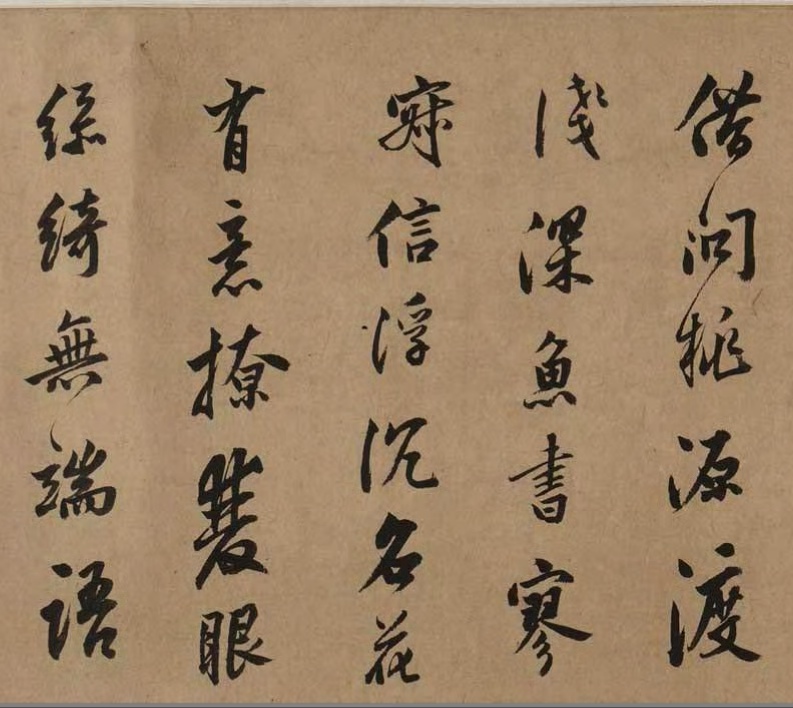 借問桃源渡
淺深魚書寥
寂信浮沉名花
有意撩雙眼
綠綺無端語